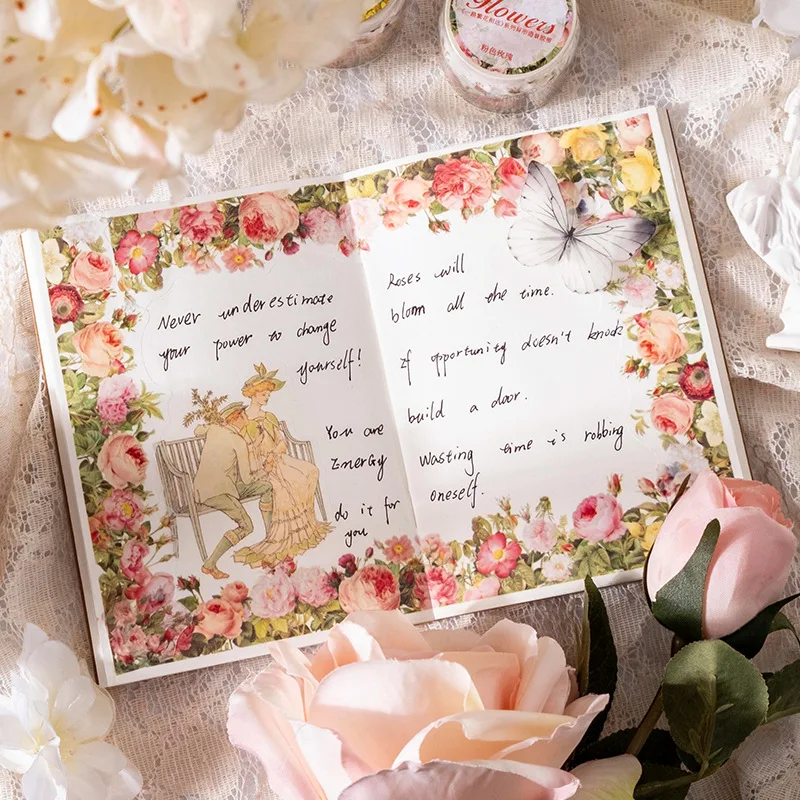 Flowers
粉色玫瑰
Never underestimate
your power to change
yourself!
You are
Energy
do it for
you
Roses will
bloom all the time.
If opportunity doesn't knock
build a door.
Wasting time is robbing
oneself.